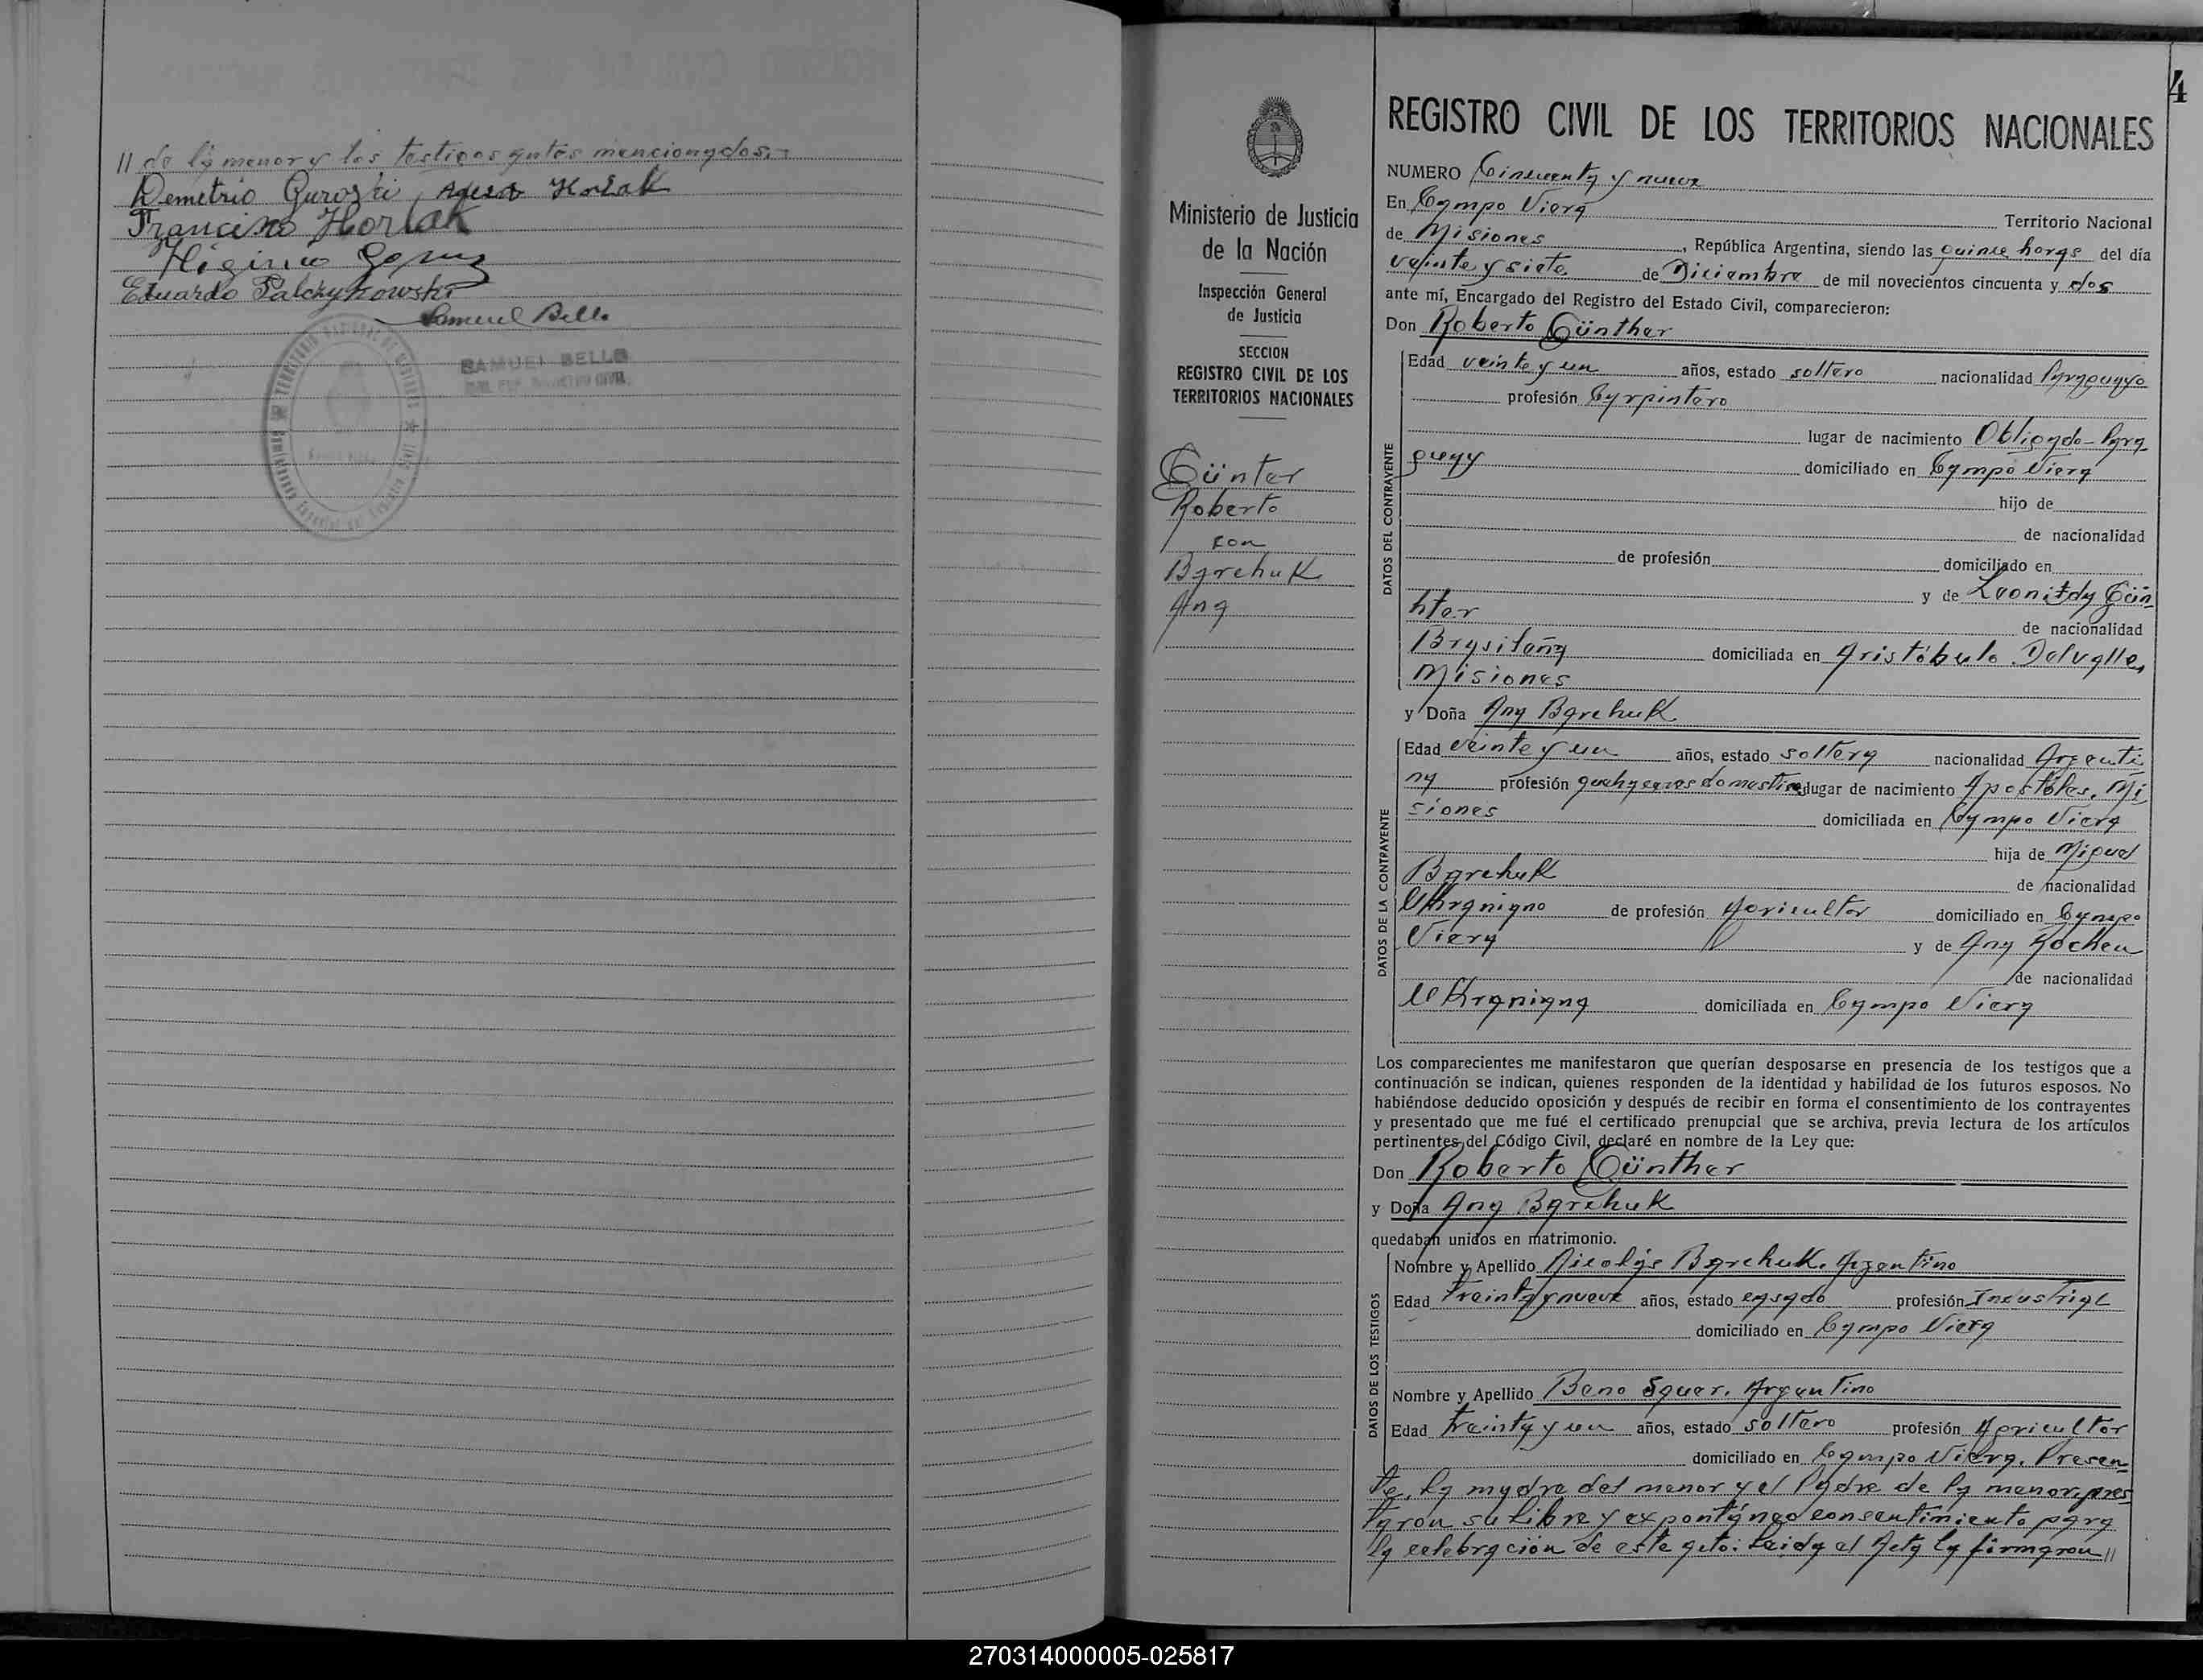 // de la menor y los testigos antes mencionados.-
Demetrio Guroski, Horlak
Francisco Horlak
Higinio Gomez
Eduardo Palchykowski
Samuel Bello
SAMUEL BELLO
4
REGISTRO CIVIL DE LOS TERRITORIOS NACIONALES
Ministerio de Justicia
de la Nación
Inspección General
de Justicia
SECCION
REGISTRO CIVIL DE LOS
TERRITORIOS NACIONALES
Günter
Roberto
con
Barchuk
Ana
NUMERO Cincuenta y nueve
En Campo Viera Territorio Nacional
de Misiones, República Argentina, siendo las quince horas del día
veinte y siete de Diciembre de mil novecientos cincuenta y dos
ante mí, Encargado del Registro del Estado Civil, comparecieron:
Don Roberto Günther
DATOS DEL CONTRAYENTE
Edad veinte y un años, estado soltero nacionalidad Paraguayo
profesión Carpintero
lugar de nacimiento Obligado-Para
guay domiciliado en Campo Viera
hijo de
de nacionalidad
de profesión domiciliado en
y de Leonitda Gün-
hter de nacionalidad
Brasileña domiciliada en Aristóbulo Delvalle,
Misiones
y Doña Ana Barchuk
DATOS DE LA CONTRAYENTE
Edad veinte y un años, estado soltera nacionalidad Argenti
na profesión quehaceres domesticos lugar de nacimiento Apóstoles, Mi
siones domiciliada en Campo Viera
hija de Miguel
Barchuk de nacionalidad
Ukraniano de profesión Agricultor domiciliado en Campo
Viera y de Ana
de nacionalidad
Ukraniana domiciliada en Campo Viera
Los comparecientes me manifestaron que querían desposarse en presencia de los testigos que a
continuación se indican, quienes responden de la identidad y habilidad de los futuros esposos. No
habiéndose deducido oposición y después de recibir en forma el consentimiento de los contrayentes
y presentado que me fué el certificado prenupcial que se archiva, previa lectura de los artículos
pertinentes del Código Civil, declaré en nombre de la Ley que:
Don Roberto Günther
y Doña Ana Barchuk
quedaban unidos en matrimonio.
DATOS DE LOS TESTIGOS
Nombre y Apellido Nicolás Barchuk. Argentino
Edad treinta y nueve años, estado casado profesión Industrial
domiciliado en Campo Viera
Nombre y Apellido Beno Sauer. Argentino
Edad treinta y un años, estado soltero profesión Agricultor
domiciliado en Campo Viera. Presen-
te, la madre del menor y el Padre de la menor, pres
taron su libre y expontáneo consentimiento para
la celebración de este acto: Leida el Acta la firmaron //
270314000005-025817